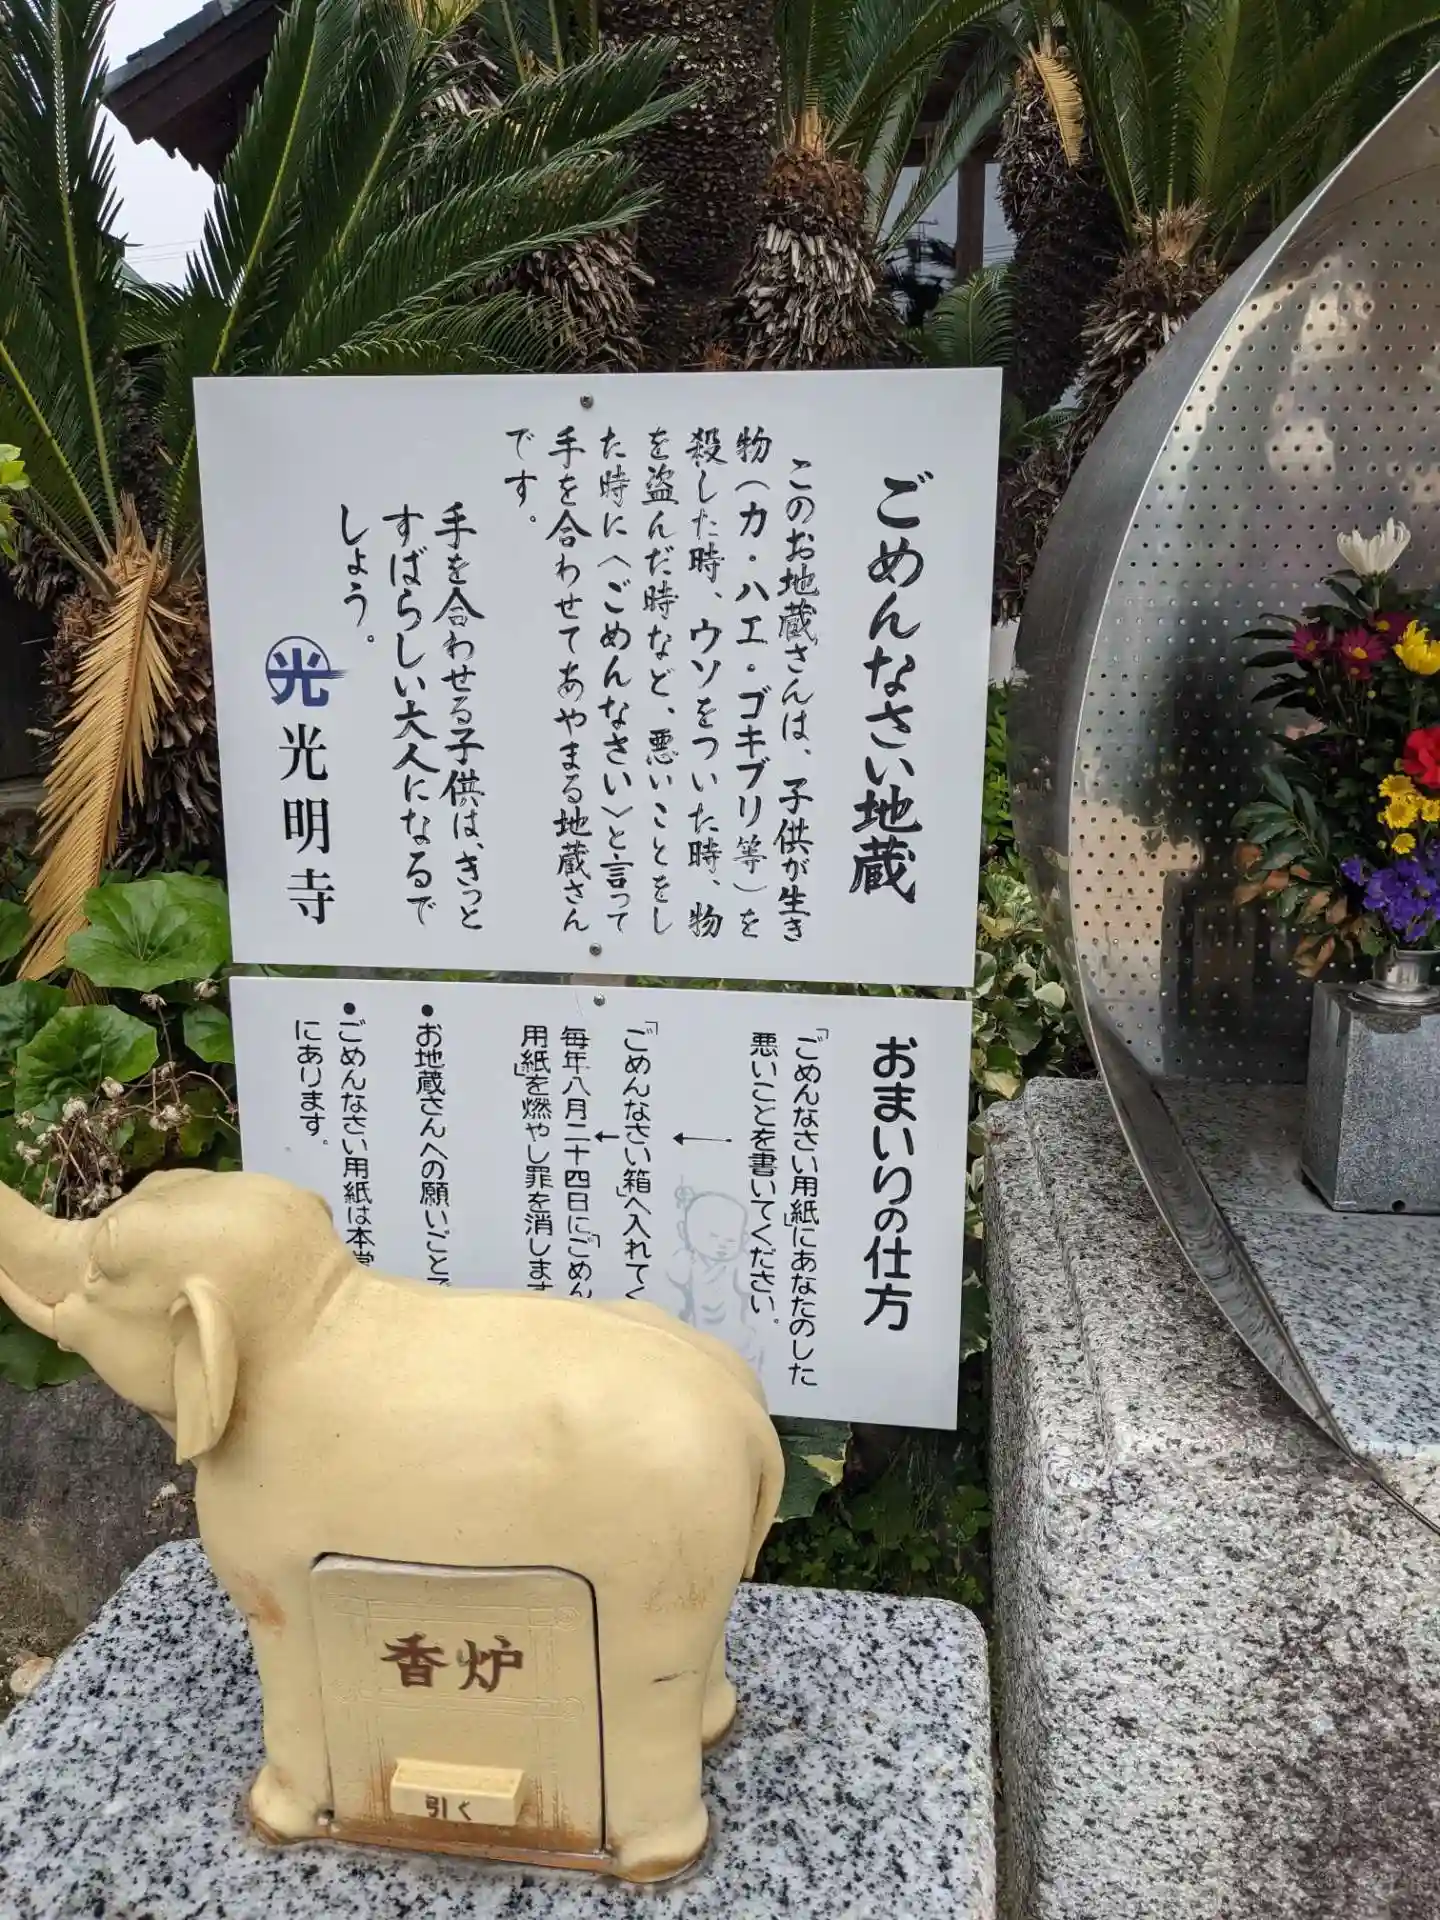 ごめんなさい地蔵
このお地蔵さんは、子供が生き
物(カ・ハエ・ゴキブリ等)を
殺した時、ウソをついた時、物
を盗んだ時など、悪いことをし
た時に〈ごめんなさい〉と言って
手を合わせてあやまる地蔵さん
です。
手を合わせる子供は、きっと
すばらしい大人になるで
しょう。
光
光明寺
おまいりの仕方
「ごめんなさい用紙」にあなたのした
悪いことを書いてください。
←
「ごめんなさい箱」へ入れてく
←
毎年八月二十四日に「ごめん
用紙」を燃やし罪を消します
●お地蔵さんへの願いごとで
●ごめんなさい用紙は本堂
にあります。
香炉
引く